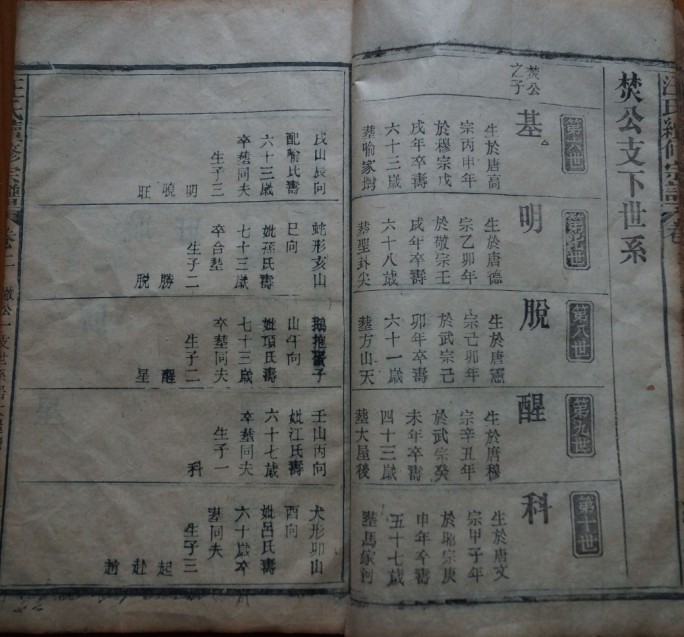 汪氏續修宗譜 卷
焚公支下世系
第六世
焚公
之子
基
生於唐高
宗丙申年
於穆宗戊
戌年卒壽
六十三歲
葬喻家塆
戌山辰向
配喻氏壽
六十三歲
卒葬同夫
生子三
明
曉
旺
第七世
明
生於唐德
宗乙卯年
於敬宗壬
戌年卒壽
六十八歲
葬聖卦尖
蛇形亥山
巳向
妣蔣氏壽
七十三歲
卒合葬
生子二
勝
脫
第八世
脫
生於唐憲
宗己卯年
於武宗己
卯年卒壽
六十一歲
葬方山天
鵝抱蛋子
山午向
妣項氏壽
七十三歲
卒葬同夫
生子二
醒
星
第九世
醒
生於唐穆
宗辛丑年
於武宗癸
未年卒壽
四十三歲
葬大屋後
壬山丙向
妣江氏壽
六十七歲
卒葬同夫
生子一
科
第十世
科
生於唐文
宗甲子年
於昭宗庚
申年卒壽
五十七歲
葬馬家河
犬形卯山
酉向
妣呂氏壽
六十歲卒
葬同夫
生子三
起
赴
趙
汪氏續修宗譜 卷二